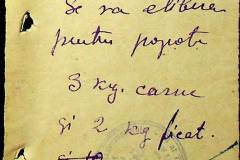 Se va elibera
pentru popota
3 kg. carne
și 2 kg ficat.